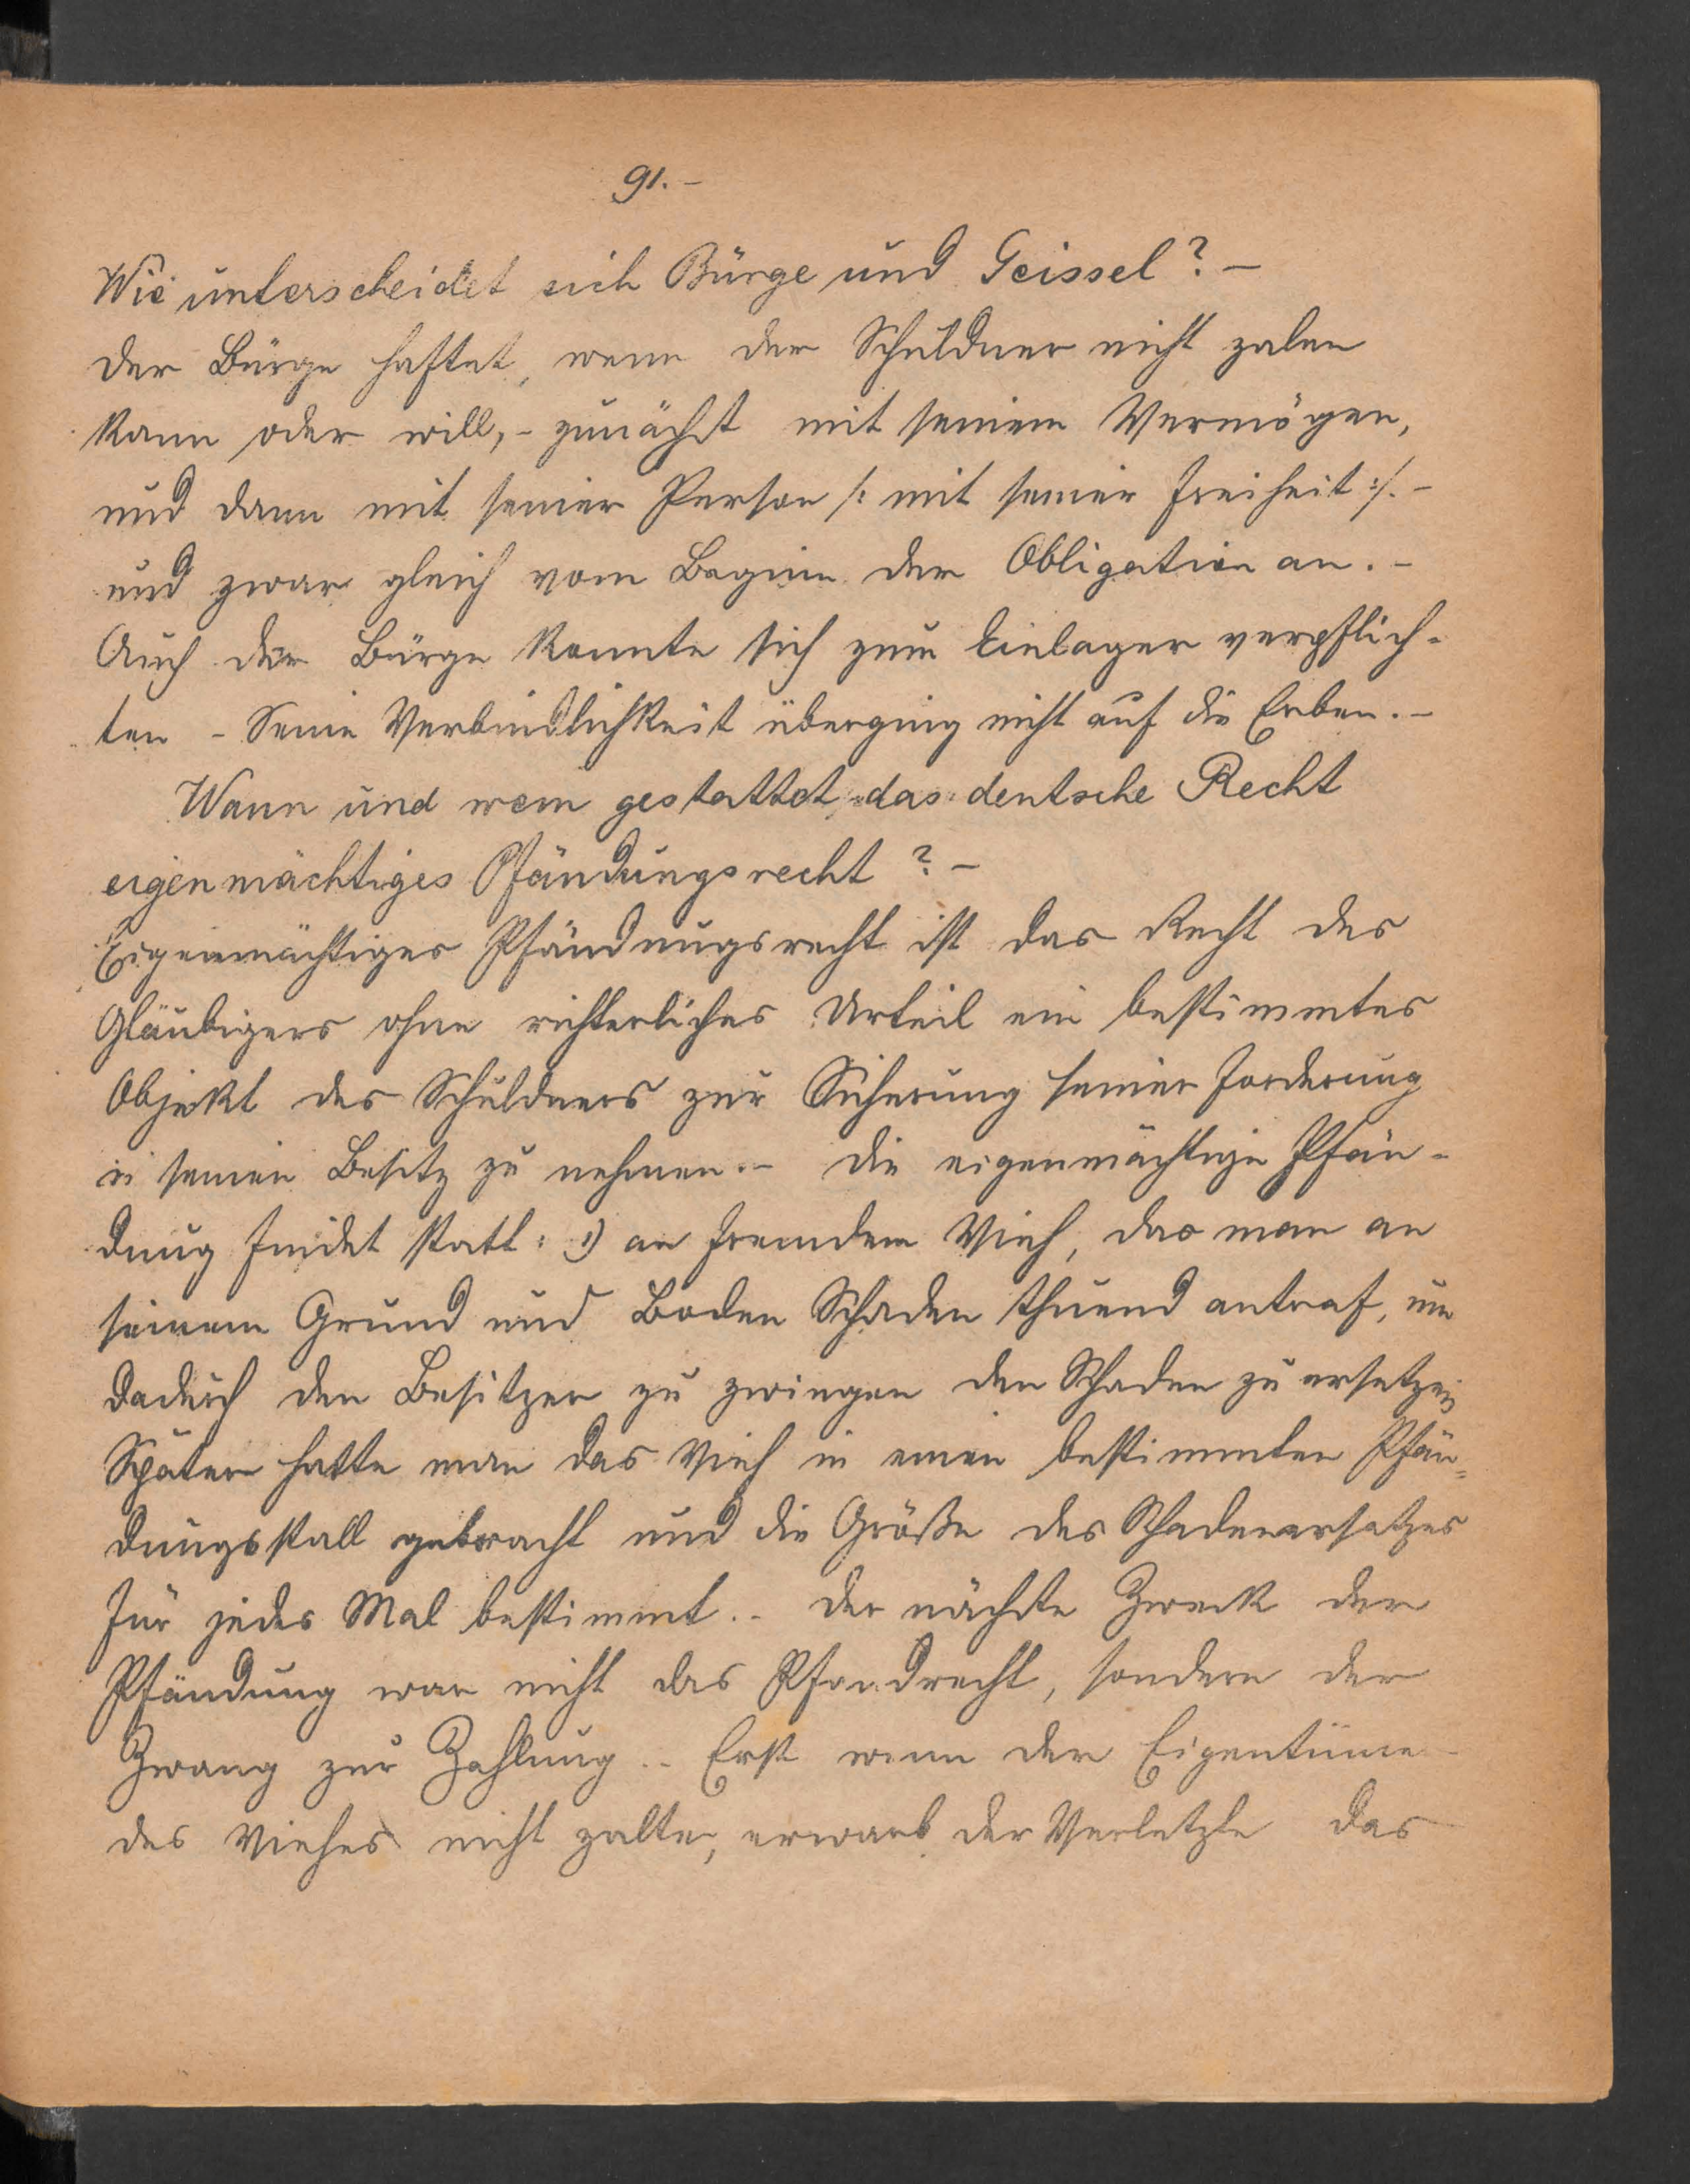 91.-
Wie unterscheidet sich Bürge und Geissel? -
Der Bürge haftet, wenn der Schuldner nicht zalen
kann oder will, - zunächst mit seinem Vermögen,
und dann mit seiner Person /: mit seiner Freiheit :/. -
und zwar gleich vom Beginn der Obligation an. -
Auch der Bürge konnte sich zum Einlager verpflich-
ten - Seine Verbindlichkeit überging nicht auf die Erben. -
Wann und wem gestattet das deutsche Recht
eigenmächtiges Pfändungsrecht? -
Eigenmächtiges Pfändungsrecht ist das Recht des
Gläubigers ohne richterliches Urteil ein bestimmtes
Objekt des Schuldners zur Sicherung seiner Forderung
in seinen Besitz zu nehmen. - Die eigenmächtige Pfän-
dung findet statt: 1) an fremdem Vieh, das man an
seinem Grund und Boden Schaden thuend antraf, um
dadurch den Besitzer zu zwingen den Schaden zu ersetzen
Später hatte man das Vieh in einen bestimmten Pfän=
dungsstall gebracht und die Größe des Schadenersatzes
für jedes Mal bestimmt. - Der nächste Zweck der
Pfändung war nicht das Pfandrecht, sondern der
Zwang zur Zahlung. - Erst wenn der Eigentümer
des Viehes nicht zalte, erwarb der Verletzte das